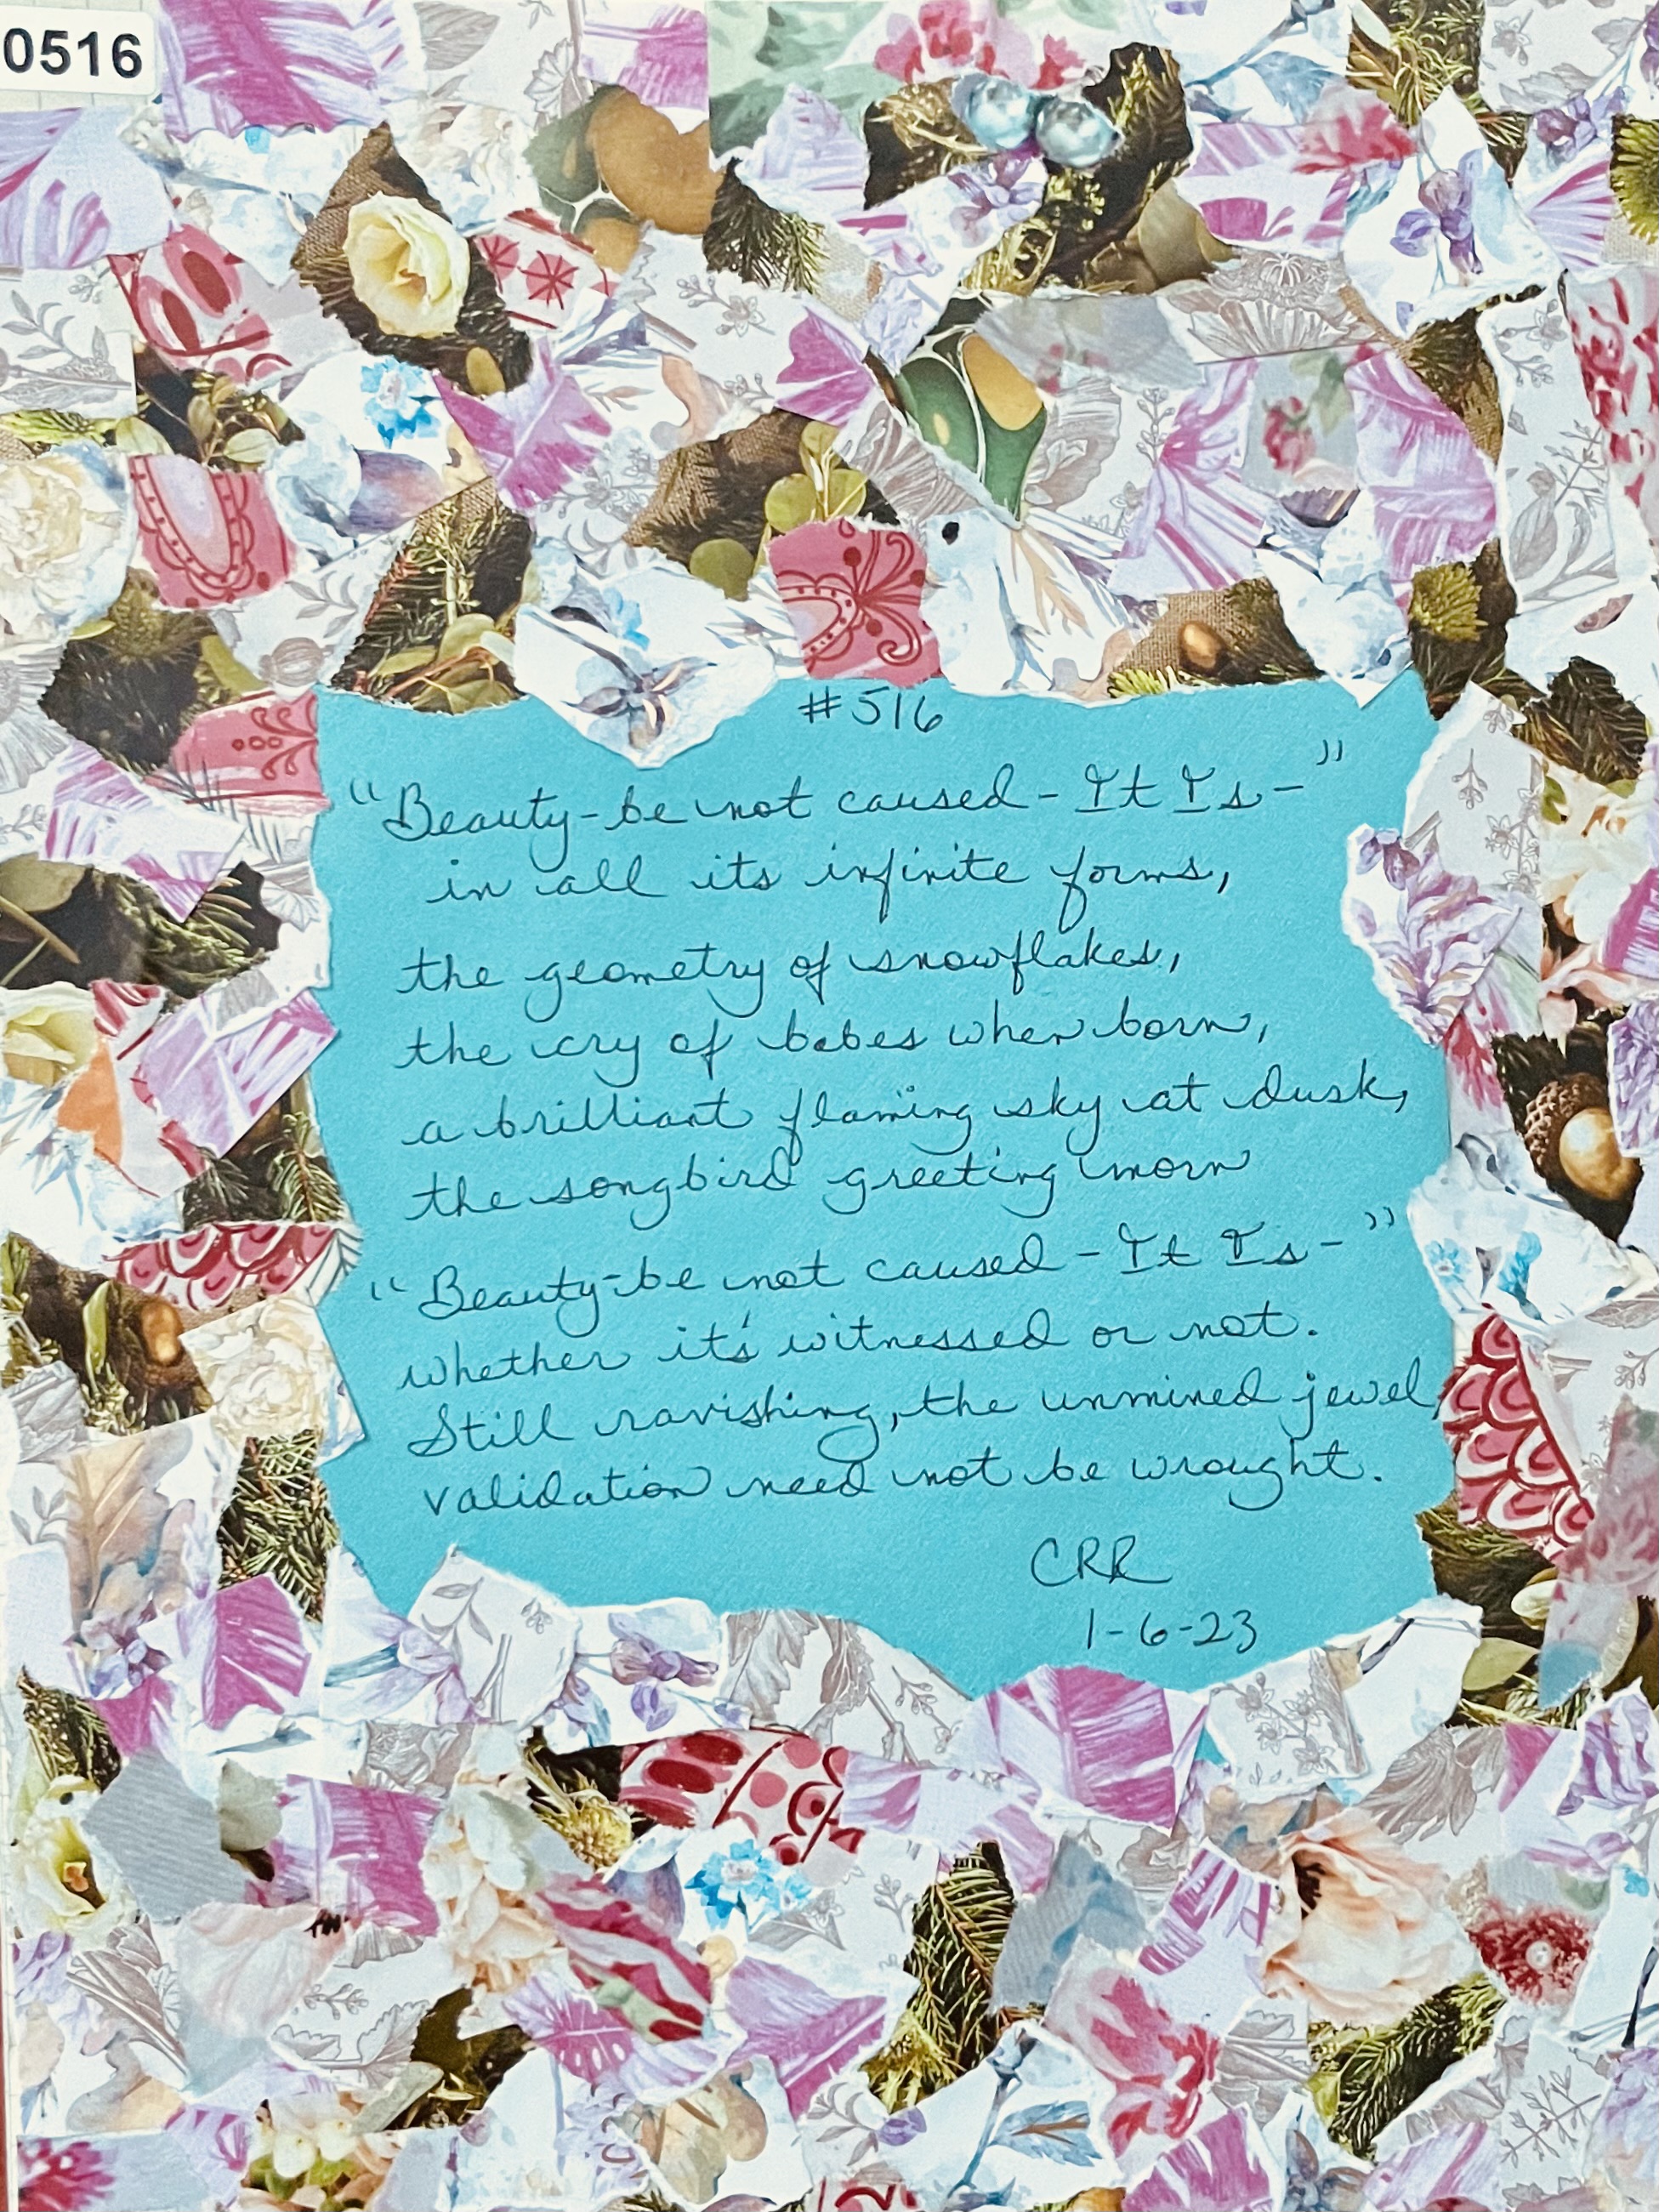 0516
#516
"Beauty-be not caused-It Is-"
in all its infinite forms,
the geometry of snowflakes,
the cry of babes when born,
a brilliant flaming sky at dusk,
the songbird greeting morn
"Beauty-be not caused-It Is-"
whether it's witnessed or not.
Still ravishing, the unmined jewel,
validation need not be wrought.
CRR
1-6-23